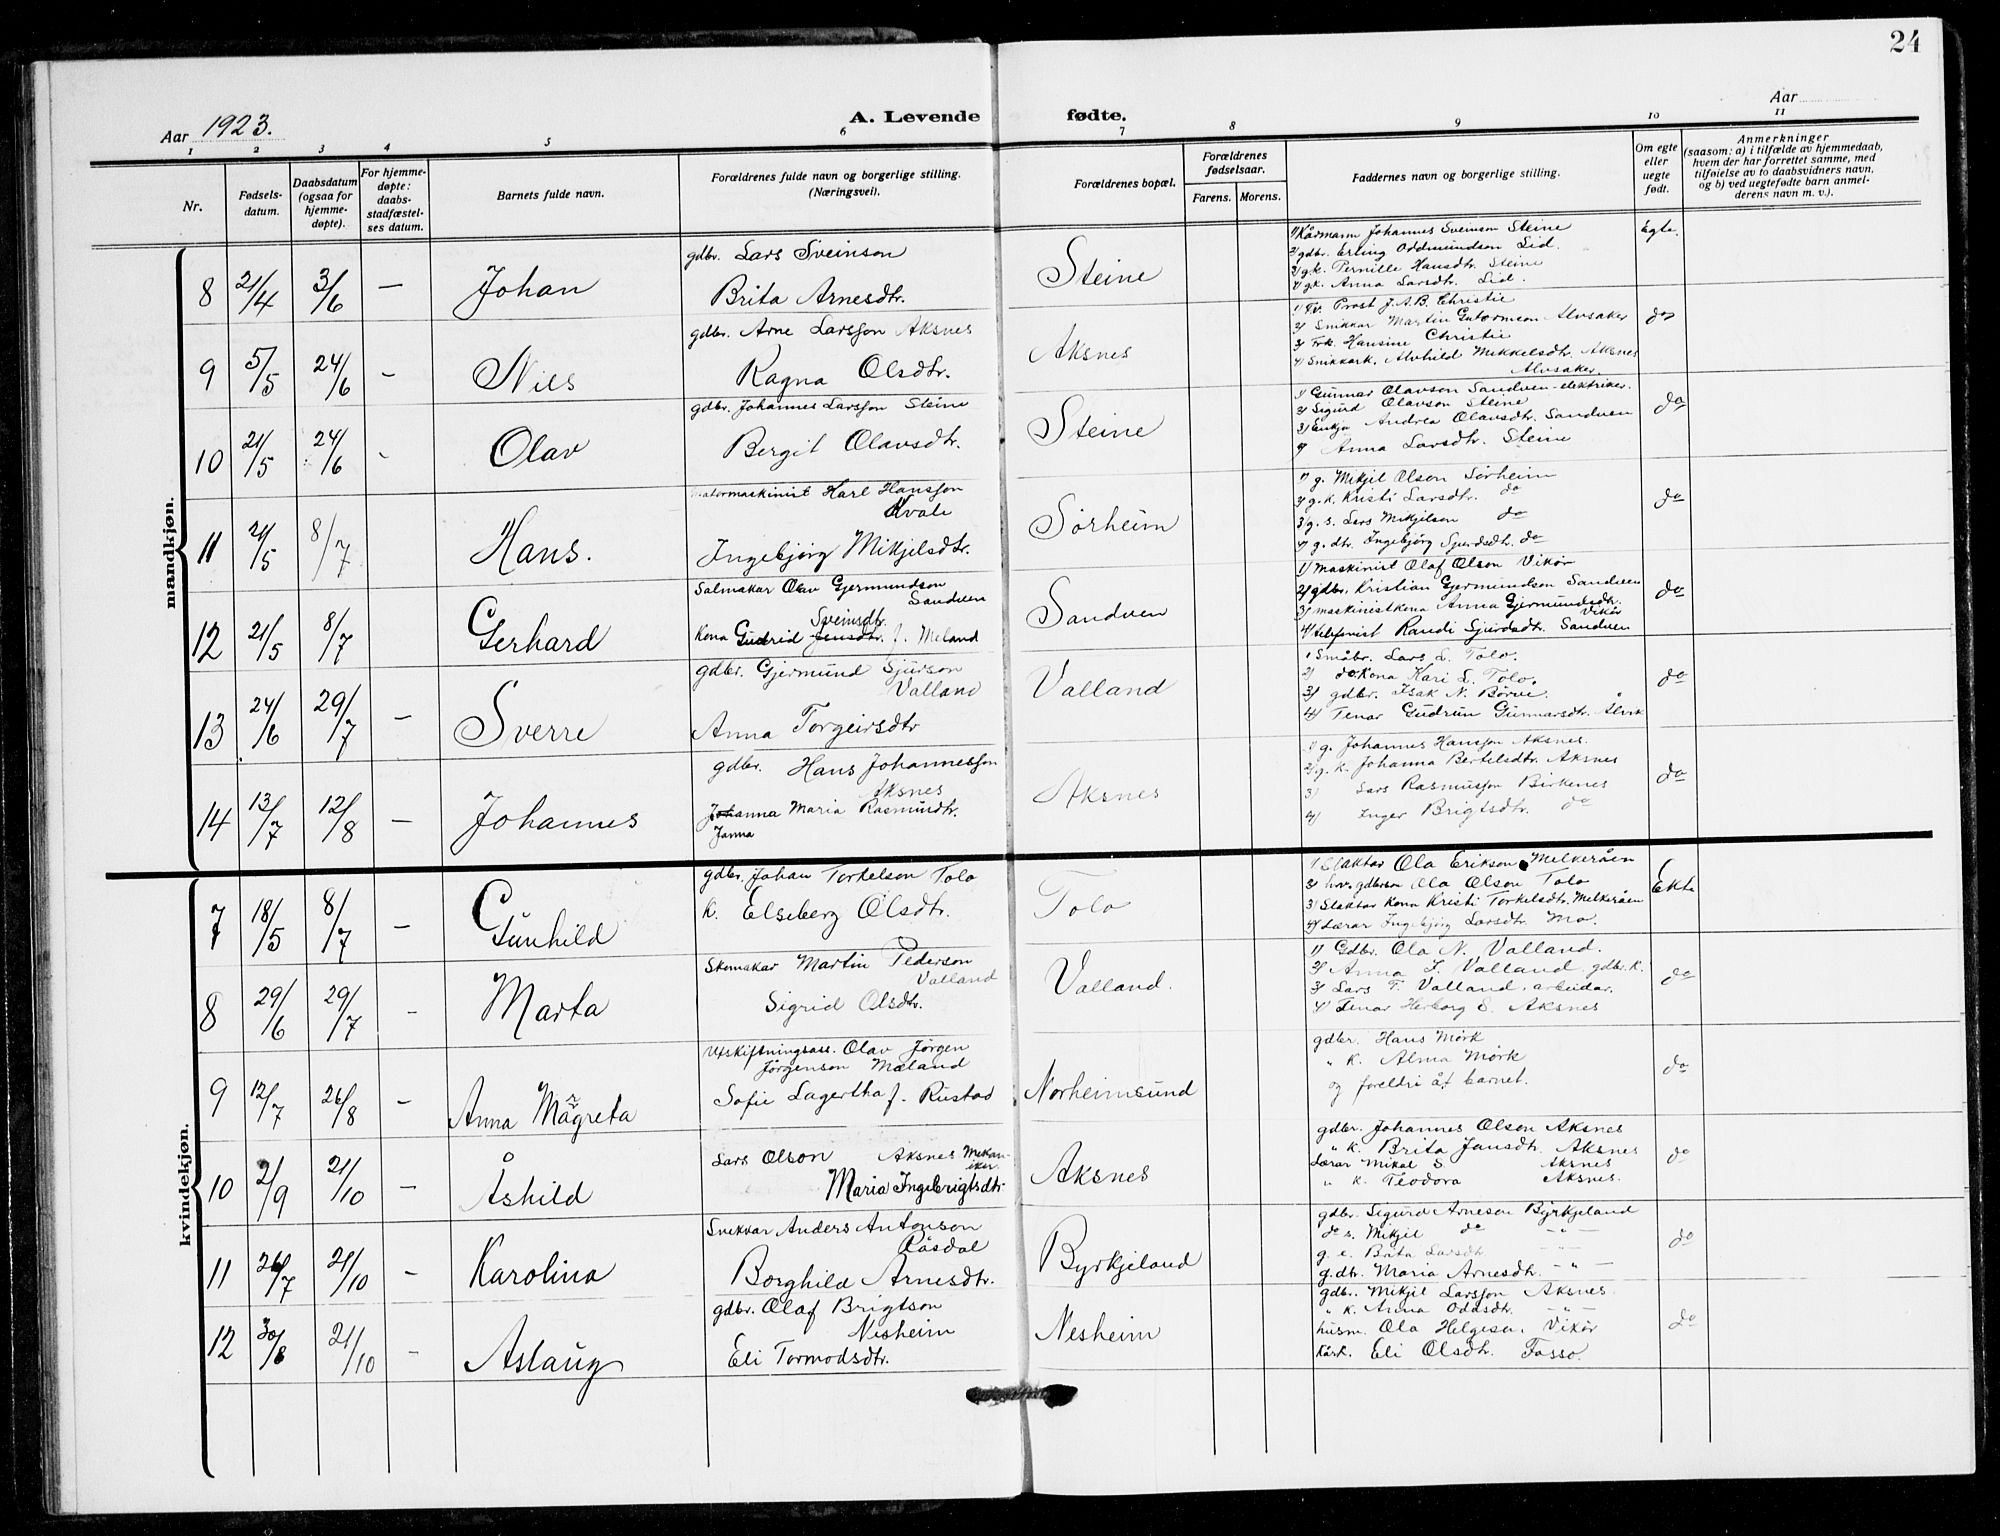 24
Aar 1923.
A. Levende fødte.
Aar
1 2 3 4 5 6 7 8 9 10 11
Nr.
Fødsels-
datum.
Daabsdatum
(ogsaa for
hjemme-
døpte).
For hjemme-
døpte:
daabs-
stadfæstel-
ses datum.
Barnets fulde navn.
Forældrenes fulde navn og borgerlige stilling.
(Næringsvei).
Forældrenes bopæl.
Forældrenes
fødselsaar.
Farens. Morens.
Faddernes navn og borgerlige stilling.
Om egte
eller
uegte
født.
Anmerkninger
(saasom: a) i tilfælde av hjemmedaab,
hvem der har forrettet samme, med
tilføielse av to daabsvidners navn,
og b) ved uegtefødte barn anmel-
derens navn m. v.).
mandkjøn.
8 21/4 3/6 — Johan
gdbr. Lars Sveinson
Brita Arnesdtr.
Steine
1) Kårmann Johannes Sveinson Steine
2) gdbr. Erling Oddmundson Lid
3) g.k. Pernille Hansdtr. Steine
4) g.k. Anna Larsdtr. Lid.
Egte.
9 5/5 24/6 — Nils
gdbr. Arne Larsson Aksnes
Ragna Olsdtr.
Aksnes
1) Fv. Prost J.A.B. Christie
2) Snikkar Martin Guttormson Alvsaker
3) Frk. Hansine Christie
4) Snikkark. Alvhild Mikkelsdtr. Aksnes
Alvsaker.
do
10 21/5 24/6 - Olav
gdbr. Johannes Larsson Steine
Bergit Olavsdtr.
Steine
1) Gunnar Olavson Sandven - elektriker.
2) Sigurd Olavson Steine
3) Enkja Andrea Olavsdtr. Sandven
4) Anna Larsdtr. Steine
do
11 21/5 8/7 Hans.
Motormaskinist Karl Hansson
Kvale
Ingebjørg Mikjelsdtr.
Sørheim
1) g. Mikjil Olson Sørheim
2) g.k. Kristi Larsdtr. do
3) g.s. Lars Mikjelson do
4) g.dtr. Ingebjørg Sjurdsdtr. do
do
12 21/5 8/7 Gerhard
Salmakar Olav Gjermundson
Sandven
Sveinsdtr.
Kona Gudrid Jensdtr. f. Meland
Sandven
1) Maskinist Olaf Olson Vikør
2) gdbr. Kristian Gjermundson Sandven
3) maskinistkona Anna Gjermundsdtr.
Vikør
4) telefonist Randi Sjurdsdtr. Sandven
do
13 24/6 29/7 — Sverre
gdbr. Gjermund Sjurson
Valland
Anna Torgeirsdtr
Valland
1 Småbr. Lars L. Tolo.
2) do kona Kari L. Tolo.
3) gdbr. Isak N. Børve.
4) Tenar Gudrun Gunnarsdtr. Ålvik
do
14 13/7 12/8 — Johannes
gdbr. Hans Johannesson
Aksnes
Johanna Maria Rasmundtr.
Janna
Aksnes
1) g. Johannes Hansson Aksnes.
2) g.k. Johanna Bertelsdtr. Aksnes
3) Lars Rasmusson Birkenes
4) Inger Brigtsdtr. do
do
kvindekjøn.
7 18/5 8/7 — Gunhild
gdbr. Johan Torkelson Tolo
k. Elseberg Olsdtr.
Tolo
1 Slaktar Ola Erikson Melkeråen
2) gdbrson Ola Olson Tolo
3) Slaktar kona Kristi Torkelsdtr. Melkeråen
4) Lærar Ingebjørg Larsdtr. Mo.
Ekte
8 29/6 29/7 - Marta
Skomakar Martin Pederson
Valland
Sigrid Olsdtr.
Valland.
1) Gdbr. Ola N. Valland.
2) Anna L. Valland. gdbr.k.
3) Lars T. Valland. arbeidar.
4) Tenar Herborg E. Aksnes
do
9 12/7 26/8 — Anna Magreta
Utskiftningsass. Olav Jørgen
Jørgenson Mæland
Sofie Lagertha f. Rustad
Norheimsund
gdbr. Hans Mørk
" k. Alma Mørk
og foreldri åt barnet.
do
10 2/9 21/10 — Åshild
Lars Olson Aksnes Mekan-
iker.
Maria Ingebrigtsdtr.
Aksnes
gdbr. Johannes Olson Aksnes
" k. Brita Jansdtr. Aksnes
Lærar Mikal S. Aksnes
" k. Teodora Aksnes.
do
11 26/7 21/10 - Karolina
Snekkar Anders Antonson
Råsdal
Borghild Arnesdtr.
Byrkjeland
gdbr. Sigurd Arneson Byrkjeland
do s. Mikjil do —"—
g. e. Brita Larsdtr. —"—
g.dtr. Maria Arnesdtr. —"—
do
12 30/8 21/10 — Aslaug
gdbr. Olaf Brigtson
Nesheim
Eli Tormodsdtr.
Nesheim
gdbr. Mikjil Larsson Aksnes.
" k. Anna Oddsdtr. —"—
husm. Ola Helgesa. Vikør
kårk. Eli Olsdtr. Fosso.
do